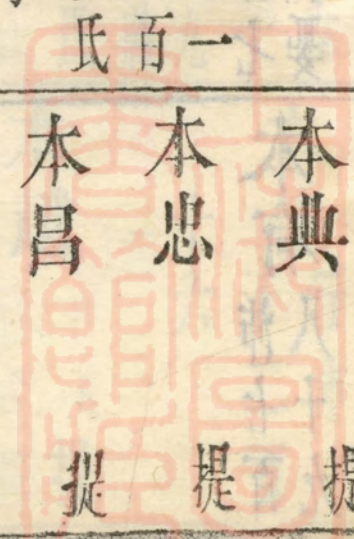 一百氏
本典 提
本忠 提
本昌 提